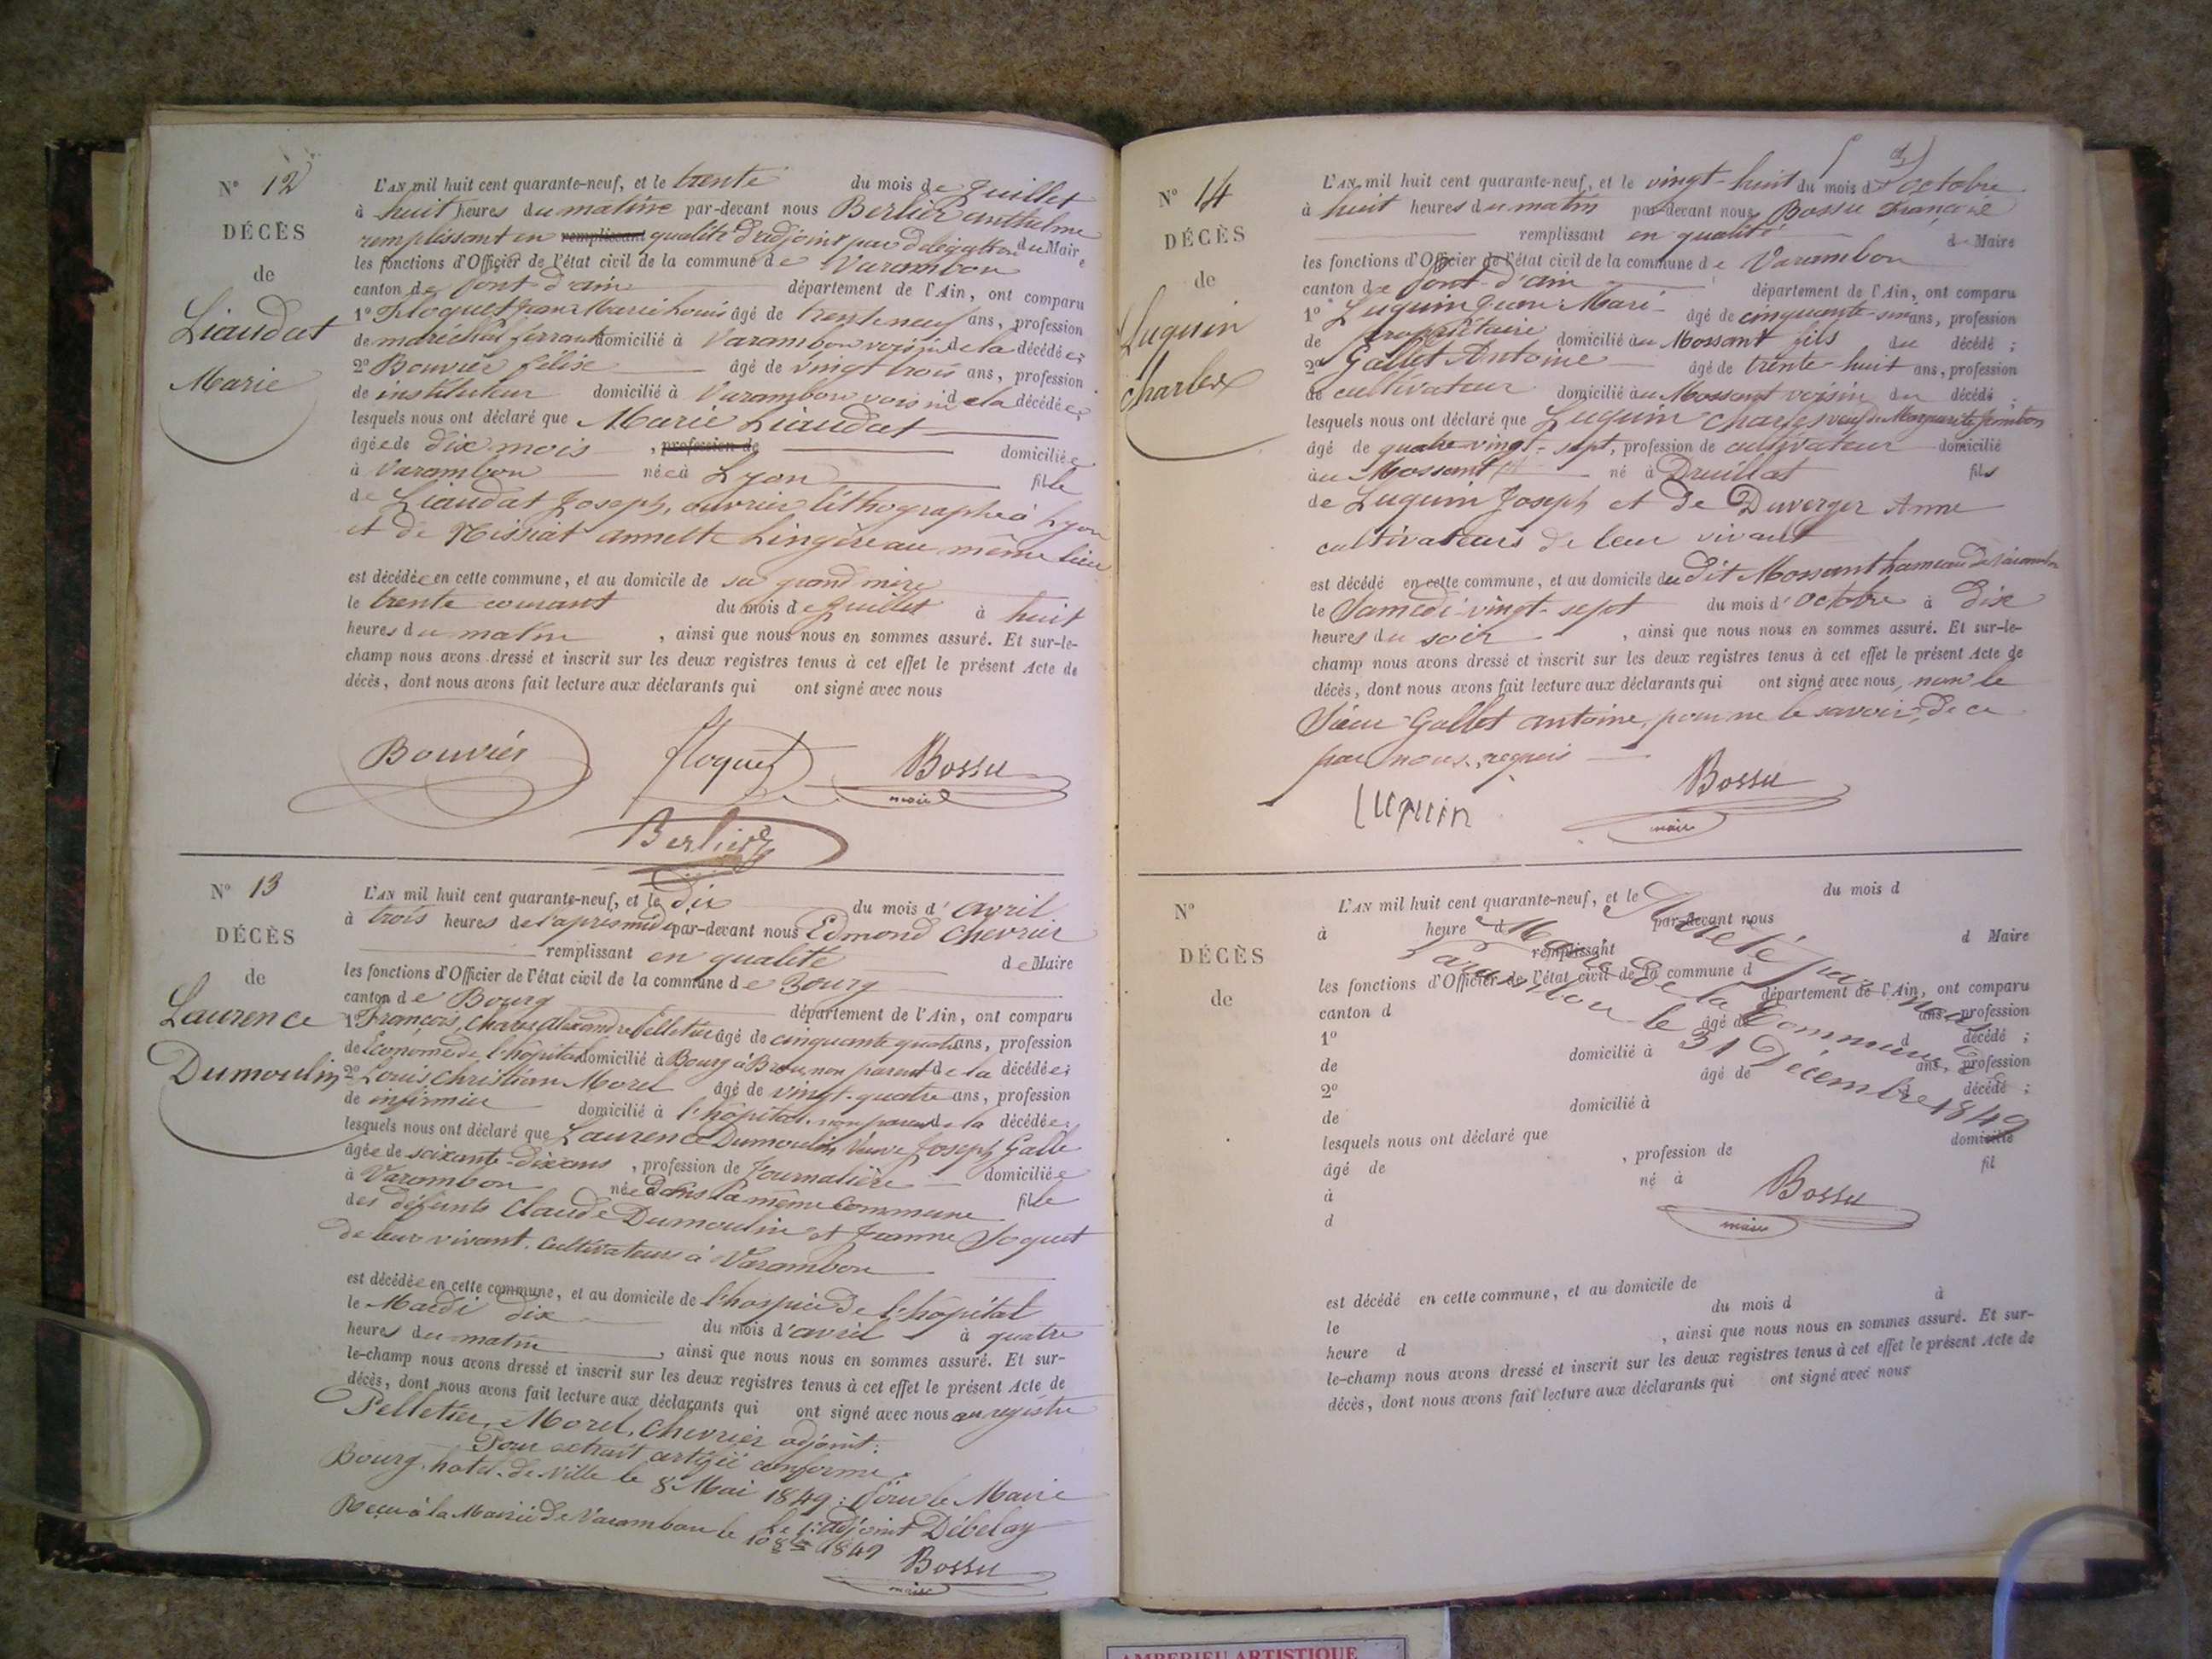 N° 12
DÉCÈS
de
Liaudat
Marie
L'AN mil huit cent quarante-neuf, et le trente du mois de Juillet
à huit heures du matin par-devant nous Berlier anthelme
remplissant en remplissant qualité d'adjoint par délégation du Maire
les fonctions d'Officier de l'état civil de la commune de Varambon
canton de Pont d'ain département de l'Ain, ont comparu
1° Floquet Jean Marie Louis âgé de trente neuf ans, profession
de maréchal ferrant domicilié à Varambon voisin de la décédée;
2° Bouvier félix âgé de vingt trois ans, profession
de instituteur domicilié à Varambon voisin de la décédée;
lesquels nous ont déclaré que Marie Liaudat
âgée de dix mois , profession de domiciliée
à Varambon née à Lyon fille
de Liaudat Joseph, ouvrier lithographe à Lyon
et de Nissiat annette Lingère au même lieu
est décédée en cette commune, et au domicile de sa grand mère
le trente courant du mois de Juillet à huit
heures du matin , ainsi que nous nous en sommes assuré. Et sur-le-
champ nous avons dressé et inscrit sur les deux registres tenus à cet effet le présent Acte de
décès, dont nous avons fait lecture aux déclarants qui ont signé avec nous
Bouvier floquet Bossu
maire
Berlier
N° 13
DÉCÈS
de
Laurence
Dumoulin
L'AN mil huit cent quarante-neuf, et le dix du mois d'avril
à trois heures de l'après midi par-devant nous Edmond Chevrier
remplissant en qualité de Maire
les fonctions d'Officier de l'état civil de la commune de Bourg
canton de Bourg département de l'Ain, ont comparu
1° François, Charles Alexandre Pelletier âgé de cinquante quatre ans, profession
de Econome de l'hôpital domicilié à Bourg à Brou, non parent de la décédée;
2° Louis Christian Morel âgé de vingt-quatre ans, profession
de infirmier domicilié à l'hôpital, non parent de la décédée;
lesquels nous ont déclaré que Laurence Dumoulin Veuve Joseph Galle
âgée de soixante-dix ans , profession de Journalière domiciliée
à Varambon née dans la même commune fille
des défunts Claude Dumoulin et Jeanne Joguet
de leur vivant, cultivateurs à Varambon
est décédée en cette commune, et au domicile de l'hospice de l'hôpital
le Mardi dix du mois d'avril à quatre
heures du matin , ainsi que nous nous en sommes assuré. Et sur-
le-champ nous avons dressé et inscrit sur les deux registres tenus à cet effet le présent Acte de
décès, dont nous avons fait lecture aux déclarants qui ont signé avec nous au registre
Pelletier, Morel, Chevrier adjoint:
Pour extrait certifié conforme.
Bourg, hotel de Ville le 8 Mai 1849: Pour le Maire
Le 1er adjoint Débelay
Reçu à la Mairie de Varambon le 10 8bre 1849
Bossu
maire
N° 14
DÉCÈS
de
Luquin
Charles
L'AN mil huit cent quarante-neuf, et le vingt-huit du mois d'octobre
à huit heures du matin par-devant nous Bossu François
remplissant en qualité de Maire
les fonctions d'Officier de l'état civil de la commune de Varambon
canton de Pont d'ain département de l'Ain, ont comparu
1° Luquin Jean Marie âgé de cinquante-un ans, profession
de propriétaire domicilié au Mossant fils du décédé;
2° Gallet Antoine âgé de trente-huit ans, profession
de cultivateur domicilié au Mossant voisin du décédé;
lesquels nous ont déclaré que Luquin Charles veuf de Marguerite
âgé de quatre-vingt-sept, profession de cultivateur domicilié
au Mossant né à Druillat fils
de Luquin Joseph et de Duverger Anne
cultivateurs de leur vivant
est décédé en cette commune, et au domicile du dit Mossant hameau de Varambon
le Samedi vingt-sept du mois d'octobre à dix
heures du soir , ainsi que nous nous en sommes assuré. Et sur-le-
champ nous avons dressé et inscrit sur les deux registres tenus à cet effet le présent Acte de
décès, dont nous avons fait lecture aux déclarants qui ont signé avec nous, non le
Sieur Gallet antoine, pour ne le savoir, de ce
par nous requis
Luquin Bossu
maire
N°
DÉCÈS
de
L'AN mil huit cent quarante-neuf, et le du mois d
à heure d par-devant nous
remplissant d Maire
les fonctions d'Officier de l'état civil de la commune d
canton d département de l'Ain, ont comparu
1° âgé de ans, profession
de domicilié à d décédé;
2° âgé de ans, profession
de domicilié à d décédé;
lesquels nous ont déclaré que
âgé de , profession de domicilié
à né à fil
d
Arreté par nous
Maire de la Commune de
Varambon le 31 Décembre 1849
Bossu
maire
est décédé en cette commune, et au domicile de
le du mois d à
heure d , ainsi que nous nous en sommes assuré. Et sur-
le-champ nous avons dressé et inscrit sur les deux registres tenus à cet effet le présent Acte de
décès, dont nous avons fait lecture aux déclarants qui ont signé avec nous
AMBERIEU ARTISTIQUE